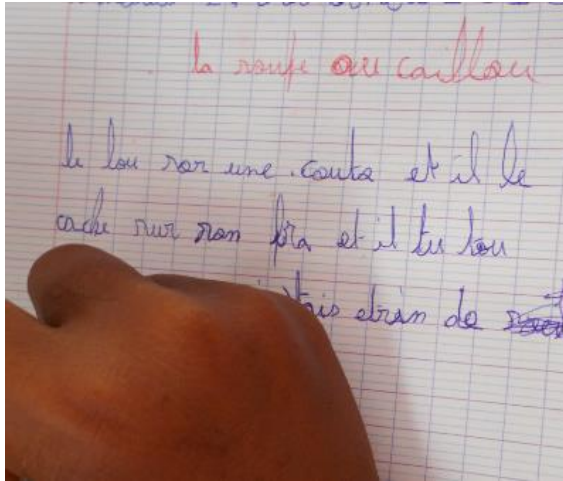 la soupe au caillou
le lou sor une couto et il le
cache sur son bra et il tu lou
tais etrin de